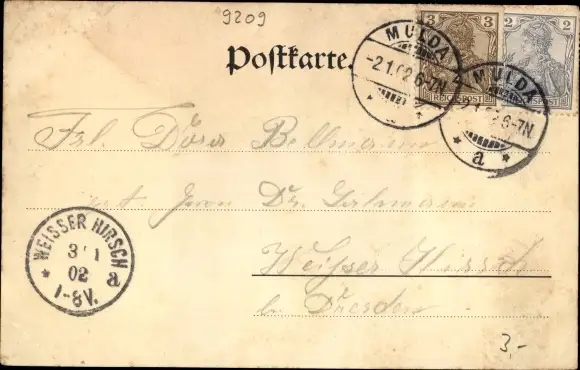 9209
Postkarte.
3 3
REICHSPOST
2 2
MULDA
-2.1.02.6-7N.
MULDA
6-7N.
* a *
Frl. Dora Bellmann
Dr.
Weißer Hirsch
b. Dresden
WEISSER HIRSCH
3 1
02
* a
1-8V.
3,-